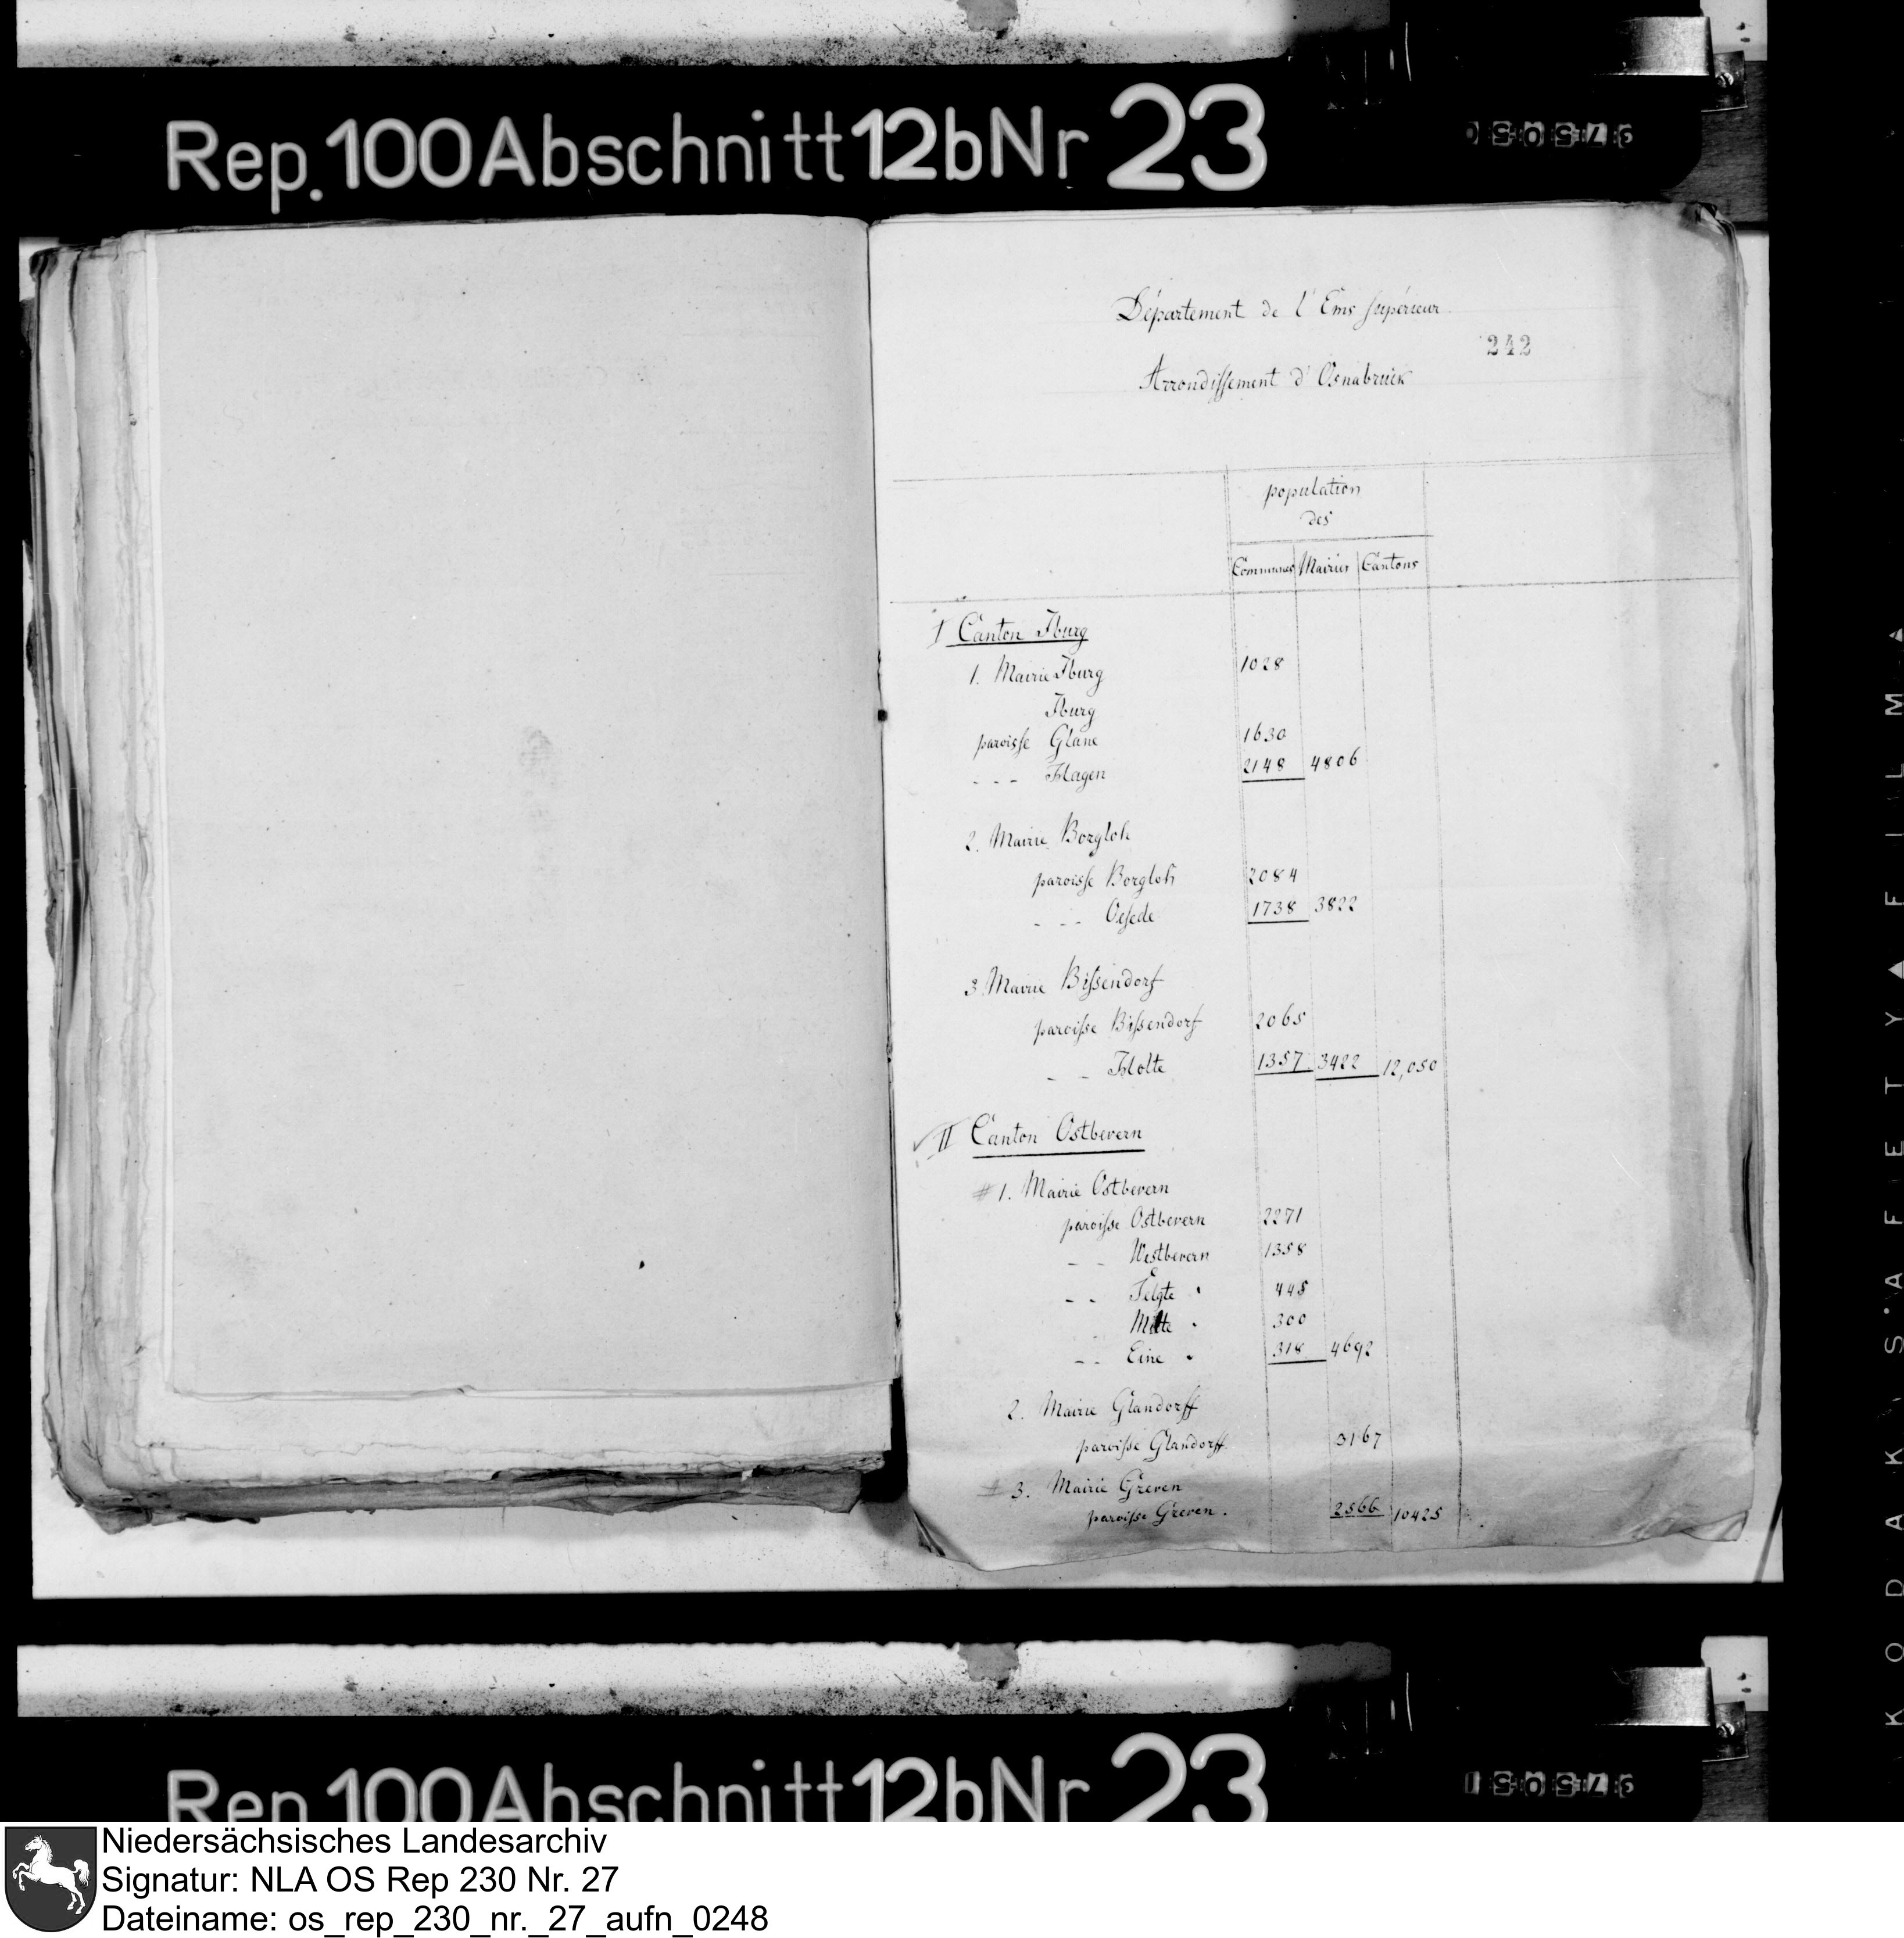 Rep. 100 Abschnitt 12b Nr 23
Département de l'Ems Supérieur
242
Arrondissement d'Osnabruck
population
des
Communes Mairies Cantons
I Canton Iburg
1. Mairie Iburg 1028
Iburg
paroisse Glane 1630
- - - Hagen 2148 4806
2. Mairie Borgloh
paroisse Borgloh 2084
- - - Oesede 1738 3822
3. Mairie Bissendorf
paroisse Bissendorf 2065
- - Holte 1357 3422 12,050
II Canton Ostbevern
# 1. Mairie Ostbevern
paroisse Ostbevern 2271
- - Westbevern 1358
- - Telgte 445
Milte 300
- - Eine 318 4692
2. Mairie Glandorff
paroisse Glandorff 3167
3. Mairie Greven
paroisse Greven. 2566 10425
KODAK SAFETY FILM
Rep. 100 Abschnitt 12b Nr 23
Niedersächsisches Landesarchiv
Signatur: NLA OS Rep 230 Nr. 27
Dateiname: os_rep_230_nr._27_aufn_0248